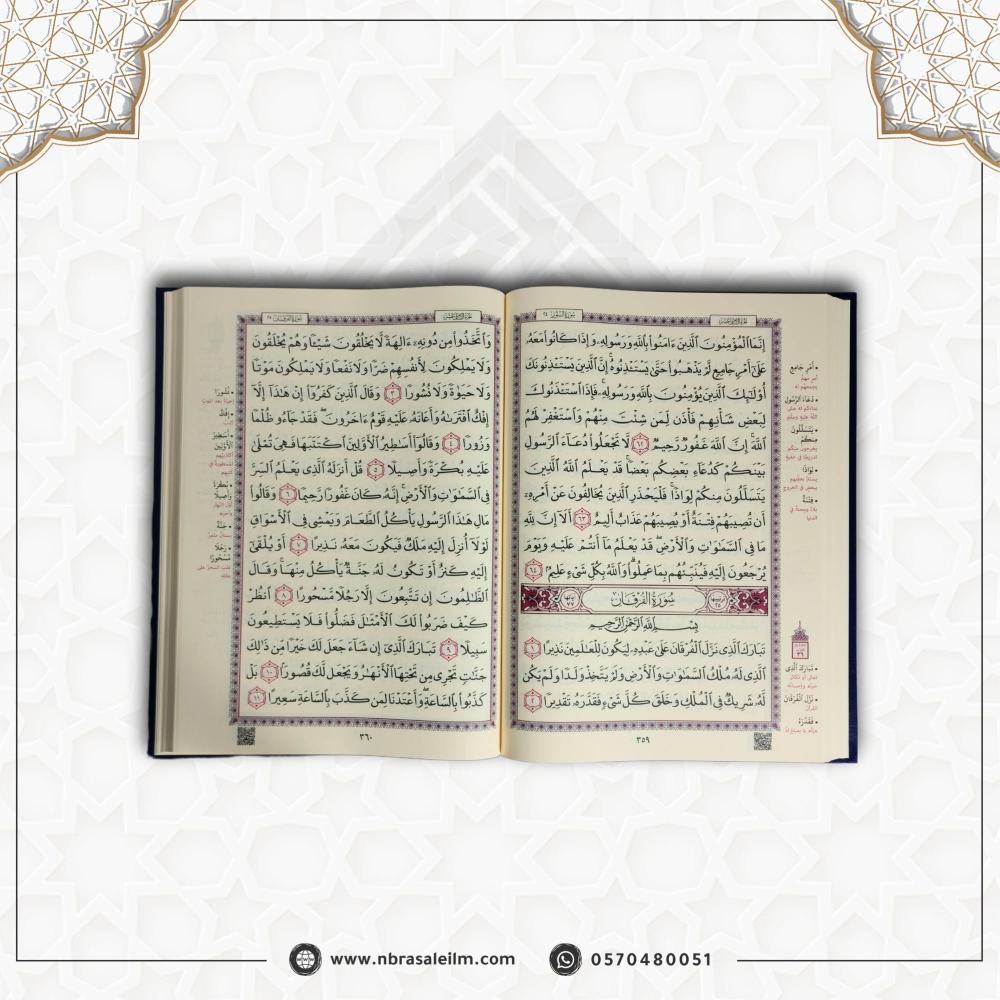 سورة النور ٢٤
إِنَّمَا ٱلْمُؤْمِنُونَ ٱلَّذِينَ ءَامَنُوا۟ بِٱللَّهِ وَرَسُولِهِۦ وَإِذَا كَانُوا۟ مَعَهُۥ
عَلَىٰٓ أَمْرٍ جَامِعٍ لَّمْ يَذْهَبُوا۟ حَتَّىٰ يَسْتَـْٔذِنُوهُ إِنَّ ٱلَّذِينَ يَسْتَـْٔذِنُونَكَ
أُو۟لَـٰٓئِكَ ٱلَّذِينَ يُؤْمِنُونَ بِٱللَّهِ وَرَسُولِهِۦ فَإِذَا ٱسْتَـْٔذَنُوكَ
لِبَعْضِ شَأْنِهِمْ فَأْذَن لِّمَن شِئْتَ مِنْهُمْ وَٱسْتَغْفِرْ لَهُمُ
ٱللَّهَ إِنَّ ٱللَّهَ غَفُورٌ رَّحِيمٌ ٦٢ لَّا تَجْعَلُوا۟ دُعَآءَ ٱلرَّسُولِ
بَيْنَكُمْ كَدُعَآءِ بَعْضِكُم بَعْضًا قَدْ يَعْلَمُ ٱللَّهُ ٱلَّذِينَ
يَتَسَلَّلُونَ مِنكُمْ لِوَاذًا فَلْيَحْذَرِ ٱلَّذِينَ يُخَالِفُونَ عَنْ أَمْرِهِۦٓ
أَن تُصِيبَهُمْ فِتْنَةٌ أَوْ يُصِيبَهُمْ عَذَابٌ أَلِيمٌ ٦٣ أَلَآ إِنَّ لِلَّهِ
مَا فِى ٱلسَّمَـٰوَٰتِ وَٱلْأَرْضِ قَدْ يَعْلَمُ مَآ أَنتُمْ عَلَيْهِ وَيَوْمَ
يُرْجَعُونَ إِلَيْهِ فَيُنَبِّئُهُم بِمَا عَمِلُوا۟ وَٱللَّهُ بِكُلِّ شَىْءٍ عَلِيمٌۢ ٦٤
ترتيبها ٢٥ سُورَةُ الفُرْقَان آياتها ٧٧
بِسْمِ ٱللَّهِ ٱلرَّحْمَـٰنِ ٱلرَّحِيمِ
تَبَارَكَ ٱلَّذِى نَزَّلَ ٱلْفُرْقَانَ عَلَىٰ عَبْدِهِۦ لِيَكُونَ لِلْعَـٰلَمِينَ نَذِيرًا ١
ٱلَّذِى لَهُۥ مُلْكُ ٱلسَّمَـٰوَٰتِ وَٱلْأَرْضِ وَلَمْ يَتَّخِذْ وَلَدًا وَلَمْ يَكُن
لَّهُۥ شَرِيكٌ فِى ٱلْمُلْكِ وَخَلَقَ كُلَّ شَىْءٍ فَقَدَّرَهُۥ تَقْدِيرًا ٢
٣٥٩
• أَمْرٍ جَامِعٍ
• دُعَاءَ الرَّسُولِ
• يَتَسَلَّلُونَ
مِنكُمْ
• لِوَاذًا
• فِتْنَةٌ
• تَبَارَكَ الَّذِي
• نَزَّلَ الْفُرْقَانَ
القرآن
• فَقَدَّرَهُ
سورة الفرقان ٢٥
وَٱتَّخَذُوا۟ مِن دُونِهِۦٓ ءَالِهَةً لَّا يَخْلُقُونَ شَيْـًٔا وَهُمْ يُخْلَقُونَ
وَلَا يَمْلِكُونَ لِأَنفُسِهِمْ ضَرًّا وَلَا نَفْعًا وَلَا يَمْلِكُونَ مَوْتًا
وَلَا حَيَوٰةً وَلَا نُشُورًا ٣ وَقَالَ ٱلَّذِينَ كَفَرُوٓا۟ إِنْ هَـٰذَآ إِلَّآ
إِفْكٌ ٱفْتَرَىٰهُ وَأَعَانَهُۥ عَلَيْهِ قَوْمٌ ءَاخَرُونَ فَقَدْ جَآءُو ظُلْمًا
وَزُورًا ٤ وَقَالُوٓا۟ أَسَـٰطِيرُ ٱلْأَوَّلِينَ ٱكْتَتَبَهَا فَهِىَ تُمْلَىٰ
عَلَيْهِ بُكْرَةً وَأَصِيلًا ٥ قُلْ أَنزَلَهُ ٱلَّذِى يَعْلَمُ ٱلسِّرَّ
فِى ٱلسَّمَـٰوَٰتِ وَٱلْأَرْضِ إِنَّهُۥ كَانَ غَفُورًا رَّحِيمًا ٦ وَقَالُوا۟
مَالِ هَـٰذَا ٱلرَّسُولِ يَأْكُلُ ٱلطَّعَامَ وَيَمْشِى فِى ٱلْأَسْوَاقِ
لَوْلَآ أُنزِلَ إِلَيْهِ مَلَكٌ فَيَكُونَ مَعَهُۥ نَذِيرًا ٧ أَوْ يُلْقَىٰٓ
إِلَيْهِ كَنزٌ أَوْ تَكُونُ لَهُۥ جَنَّةٌ يَأْكُلُ مِنْهَا وَقَالَ
ٱلظَّـٰلِمُونَ إِن تَتَّبِعُونَ إِلَّا رَجُلًا مَّسْحُورًا ٨ ٱنظُرْ
كَيْفَ ضَرَبُوا۟ لَكَ ٱلْأَمْثَـٰلَ فَضَلُّوا۟ فَلَا يَسْتَطِيعُونَ
سَبِيلًا ٩ تَبَارَكَ ٱلَّذِىٓ إِن شَآءَ جَعَلَ لَكَ خَيْرًا مِّن ذَٰلِكَ
جَنَّـٰتٍ تَجْرِى مِن تَحْتِهَا ٱلْأَنْهَـٰرُ وَيَجْعَل لَّكَ قُصُورًۢا ١٠ بَلْ
كَذَّبُوا۟ بِٱلسَّاعَةِ وَأَعْتَدْنَا لِمَن كَذَّبَ بِٱلسَّاعَةِ سَعِيرًا ١١
٣٦٠
• نُشُورًا
• إِفْكٌ
• أَسَاطِيرُ
الْأَوَّلِينَ
• بُكْرَةً
وَأَصِيلًا
• جَنَّةٌ
• رَجُلًا
مَّسْحُورًا
www.nbrasaleilm.com
0570480051